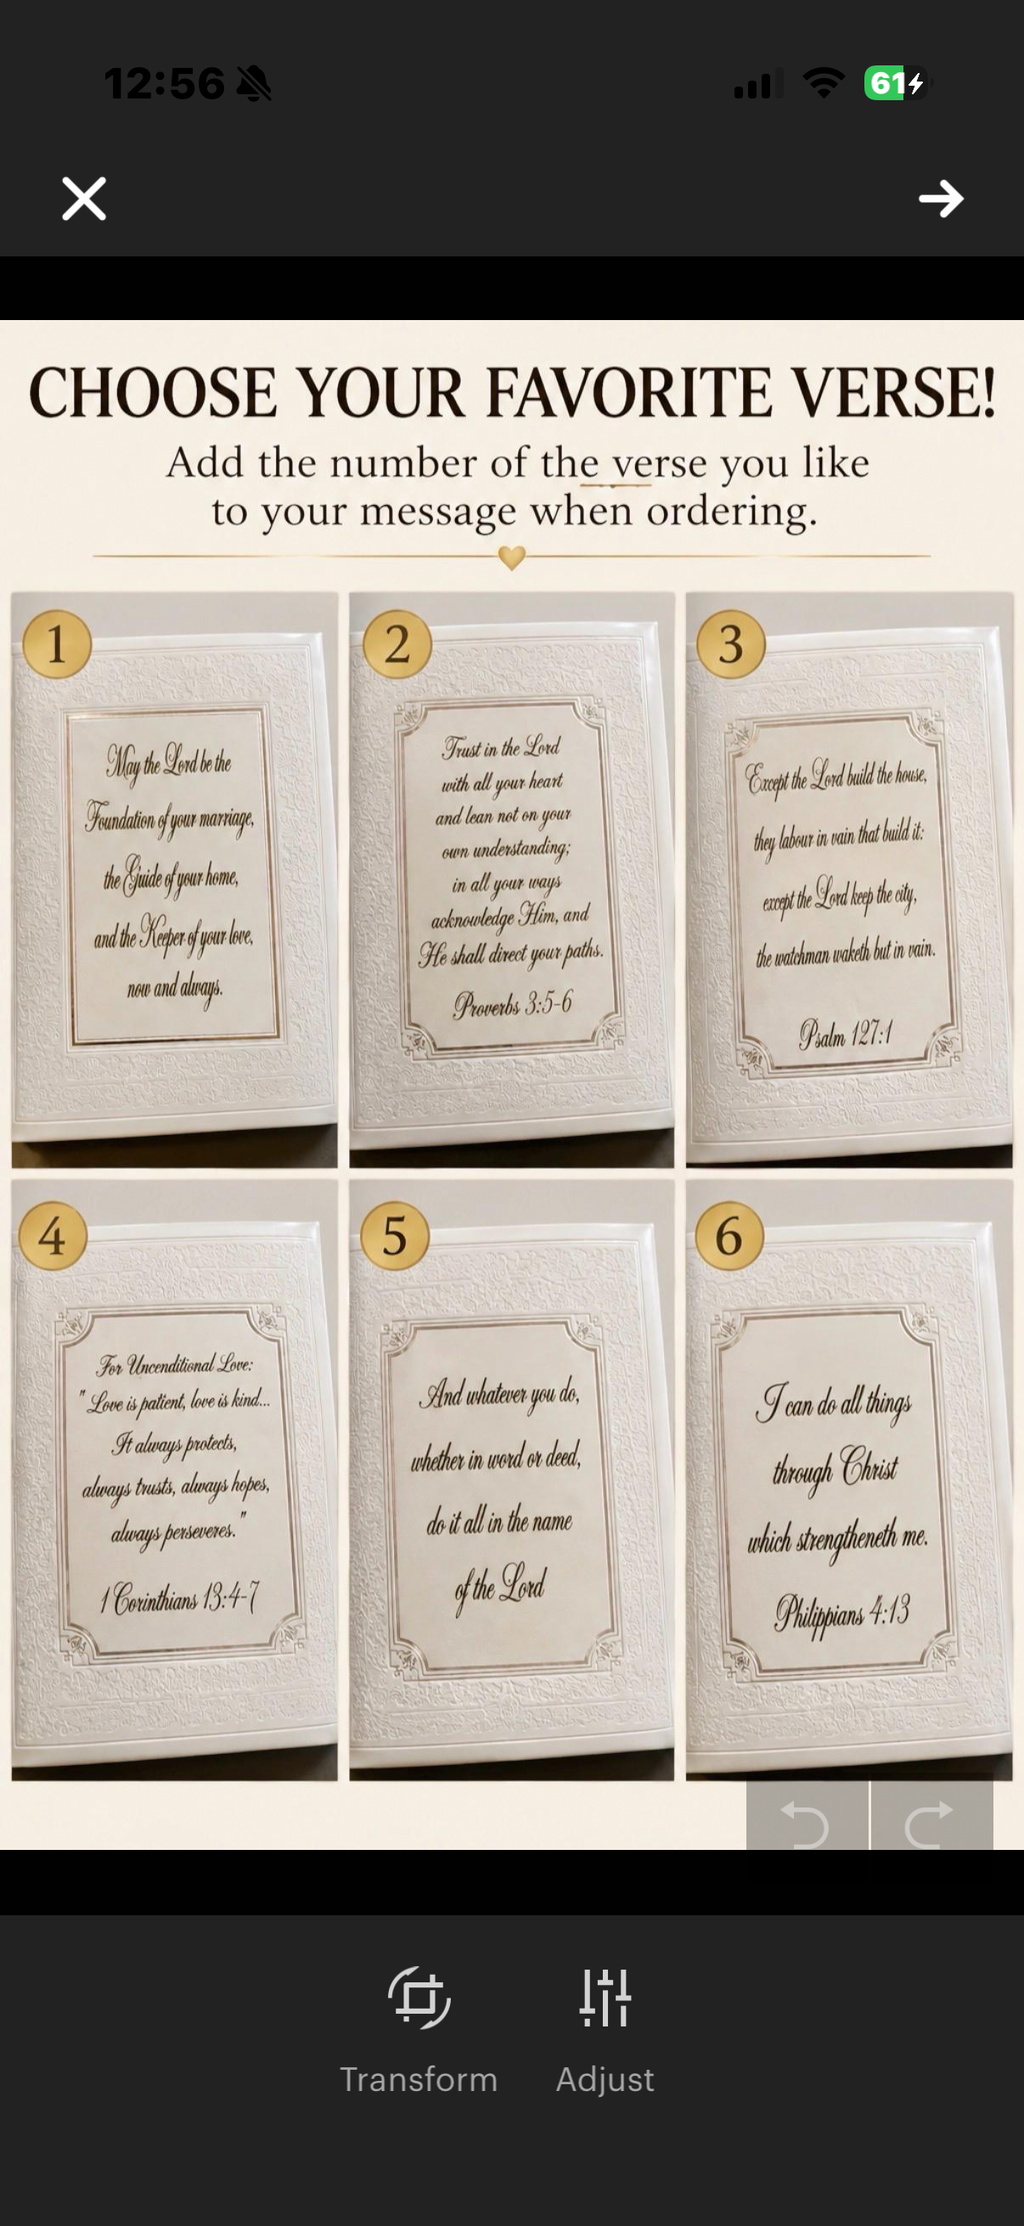 12:56
61
CHOOSE YOUR FAVORITE VERSE!
Add the number of the verse you like
to your message when ordering.
1
May the Lord be the
Foundation of your marriage,
the Guide of your home,
and the Keeper of your love,
now and always.
2
Trust in the Lord
with all your heart
and lean not on your
own understanding;
in all your ways
acknowledge Him, and
He shall direct your paths.
Proverbs 3:5-6
3
Except the Lord build the house,
they labour in vain that build it:
except the Lord keep the city,
the watchman waketh but in vain.
Psalm 127:1
4
For Uncenditional Love:
" Love is patient, love is kind...
It always protects,
always trusts, always hopes,
always perseveres."
1 Corinthians 13:4-7
5
And whatever you do,
whether in word or deed,
do it all in the name
of the Lord
6
I can do all things
through Christ
which strengtheneth me.
Philippians 4:13
Transform
Adjust